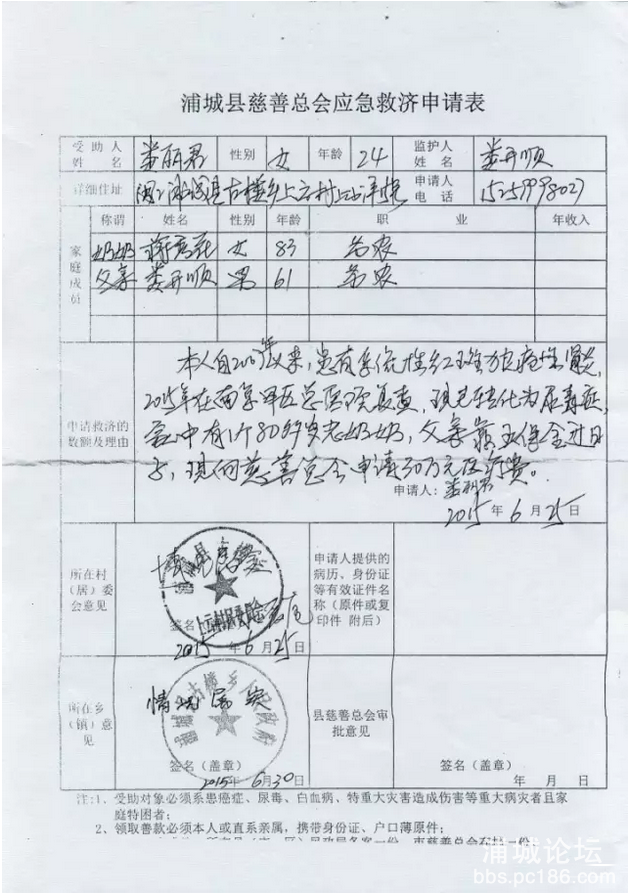 浦城县慈善总会应急救济申请表
受助人姓名 娄丽君 性别 女 年龄 24 监护人姓名 娄开顺
详细住址 县古楼乡上云村 申请人电话
家庭成员 称谓 姓名 性别 年龄 职业 年收入
奶奶 女 83 务农
父亲 娄开顺 男 61 务农
申请救济的数额及理由
本人自 年以来,患有系统性红斑狼疮性肾炎,
2015年在南京军区总医院复查,现已转化为尿毒症,
家中有1个80多岁老奶奶,父亲 低保金过日
子,现向慈善总会申请30万元医疗费。
申请人: 娄丽君
2015年 6月 25日
所在村(居)委会意见
情况属实
签名
2015年 6月 25日
申请人提供的病历、身份证等有效证件名称(原件或复印件 附后)
所在乡(镇)意见
情况属实
签名(盖章)
2015年 6月 30日
县慈善总会审批意见
签名(盖章)
年 月 日
注:1、受助对象必须系患癌症、尿毒、白血病、特重大灾害造成伤害等重大病灾者且家
庭特困者;
2、领取善款必须本人或直系亲属,携带身份证、户口薄原件;
浦城论坛
bbs.pc186.com